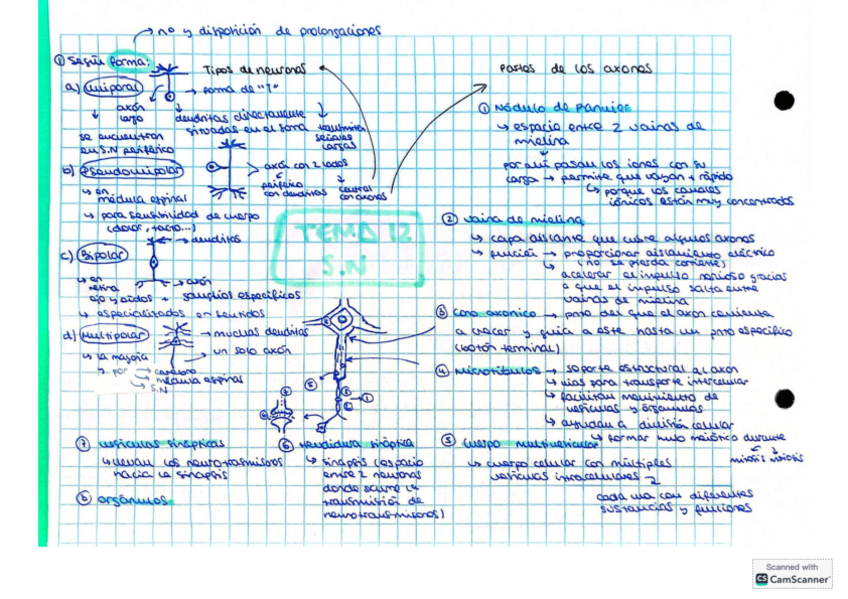 nº y disposición de prolongaciones
① Según forma:
Tipos de neuronas
a) Unipolar
→ forma de "T"
axón largo
dendritas directamente situadas en el soma
transmiten señales largas
se encuentran en S.N periférico
b) Pseudounipolar
axón con 2 lados
periférico con dendritas
central con axones
↳ en médula espinal
↳ para sensibilidad de cuerpo (dolor, tacto...)
c) Bipolar
→ dendritas
→ axón
↳ en retina
ojo y oídos + ganglios específicos
↳ especializados en sentidos
d) Multipolar
→ muchas dendritas
→ un solo axón
↳ la mayoría
↳ por → cerebro
→ médula espinal
→ S.N
TEMA 12
S.N
Partes de los axones
① Nódulo de Ranvier
↳ espacio entre 2 vainas de mielina
por aquí pasan los iones con su
carga → permite que vayan + rápido
↳ porque los canales
iónicos están muy concentrados
② vaina de mielina
↳ capa aislante que cubre algunos axones
↳ función → proporcionar aislamiento eléctrico
(no se pierda corriente)
↳ acelerar el impulso nervioso gracias
a que el impulso salta entre
vainas de mielina
③ Cono axónico → pnto del que el axon comienza
a crecer y guía a este hasta un pnto específico
(botón terminal)
④ Microtúbulos → soporte estructural al axón
↳ vías para transporte intercelular
↳ facilitan movimiento de
vesículas y orgánulos
↳ ayudan a división celular
↳ formar huso meiótico durante
mitosis meiosis
⑤ Cuerpo multivesicular
↳ cuerpo celular con múltiples
vesículas intracelulares
cada una con diferentes
sustancias y funciones
⑥ Hendidura sináptica
↳ sinapsis (espacio
entre 2 neuronas
donde ocurre la
transmisión de
neurotransmisores)
⑦ vesículas sinápticas
↳ llevan los neurotrasmisores
hacia la sinapsis
⑧ orgánulos
Scanned with
CS CamScanner